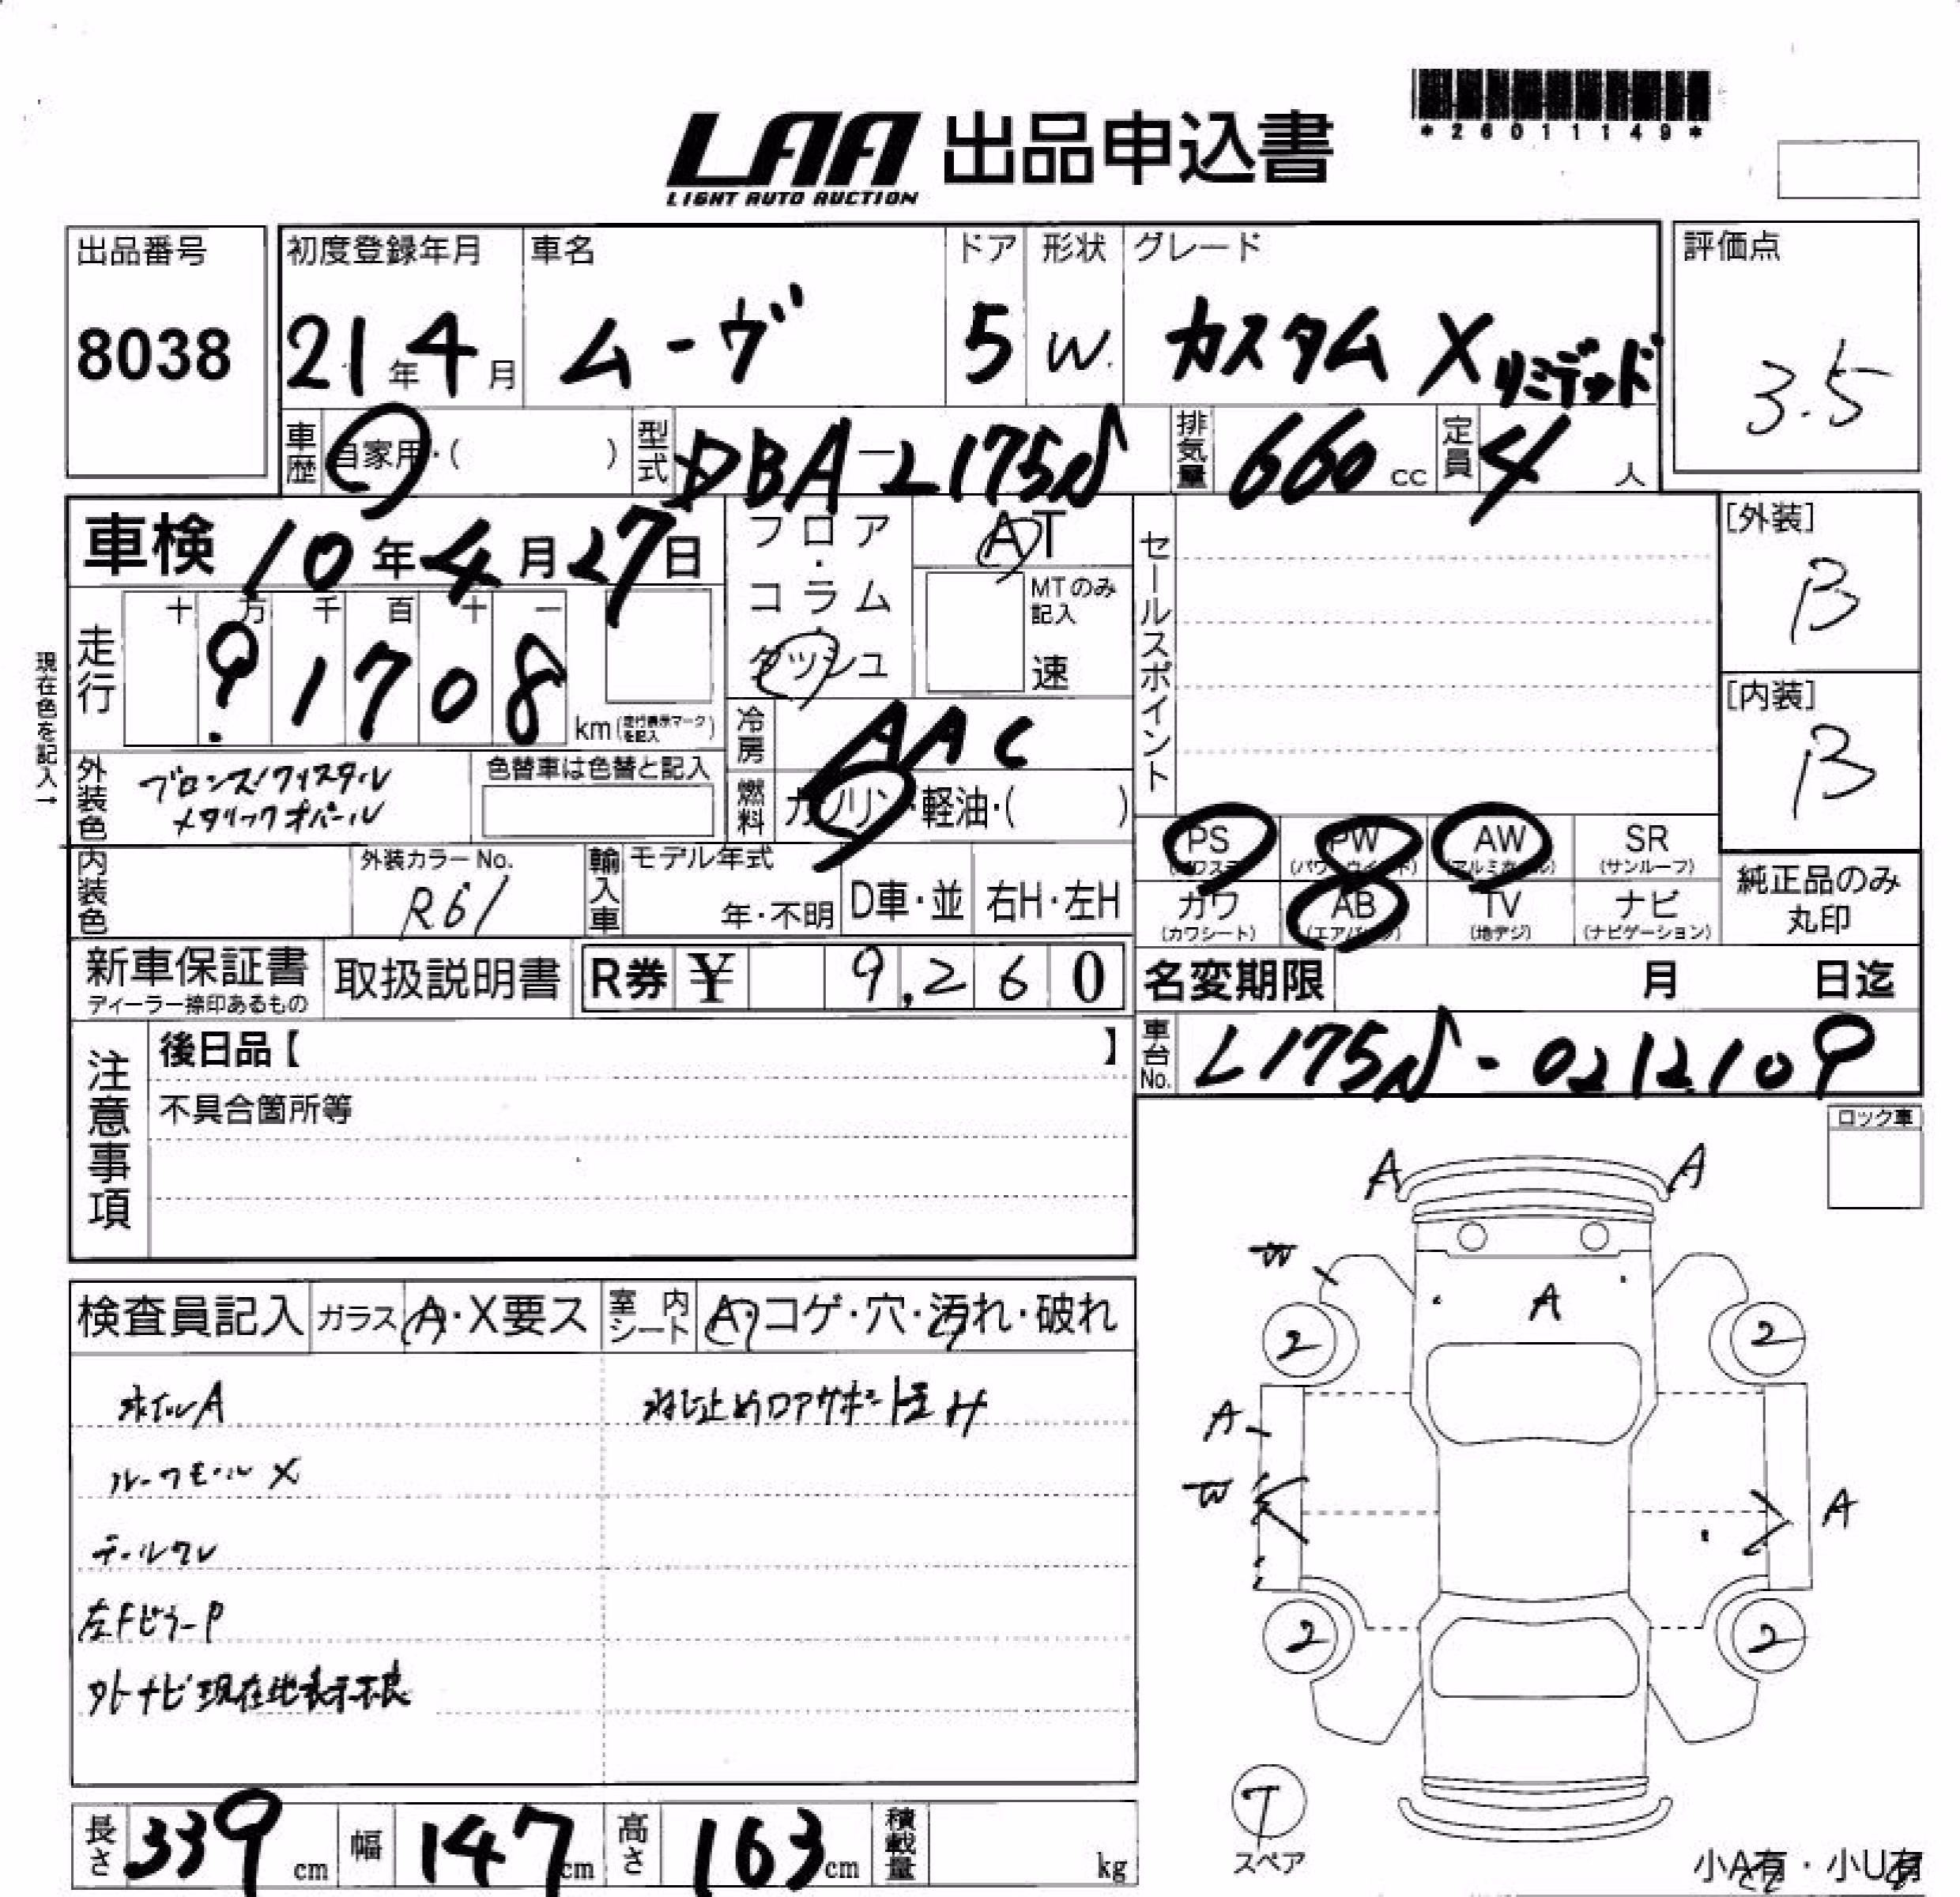 *26011149*
LAA 出品申込書
LIGHT AUTO AUCTION
出品番号 初度登録年月 車名 ドア 形状 グレード 評価点
8038 21年4月 ムーヴ 5 W. カスタム X リミテッド 3.5
車歴 自家用・( ) 型式 DBA-L175S 排気量 660 cc 定員 4 人
車検 10年4月27日 フロア・コラム・ダッシュ AT セールスポイント [外装]
B
十 万 千 百 十 一 MTのみ記入
走行 91708 km(走行表示マークを記入) 速 [内装]
B
現在色を記入→
冷房 AAC
外装色 ブロンズクリスタル 色替車は色替と記入 燃料 ガソリン・軽油・( )
メタリックオパール
PS (パワステ) PW (パワーウインド) AW (アルミホイール) SR (サンルーフ)
内装色 外装カラーNo. R61 輸入車 モデル年式 年・不明 D車・並 右H・左H
カワ (カワシート) AB (エアバッグ) TV (地デジ) ナビ (ナビゲーション) 純正品のみ丸印
新車保証書 取扱説明書 R券 ¥ 9,260 名変期限 月 日迄
ディーラー捺印あるもの
注意事項 後日品【 】 車台No. L175S-0212109
不具合箇所等
ロック車
A A
W
A
2 2
検査員記入 ガラス A・X要ス 室内シート A・コゲ・穴・汚れ・破れ
ホイルA
A
ルーフモール X
W A
テールクレ
左FピラーP
2 2
外ナビ現在地表示不良
T
スペア
長さ 339 cm 幅 147 cm 高さ 163 cm 積載量 kg
小A有・小U有